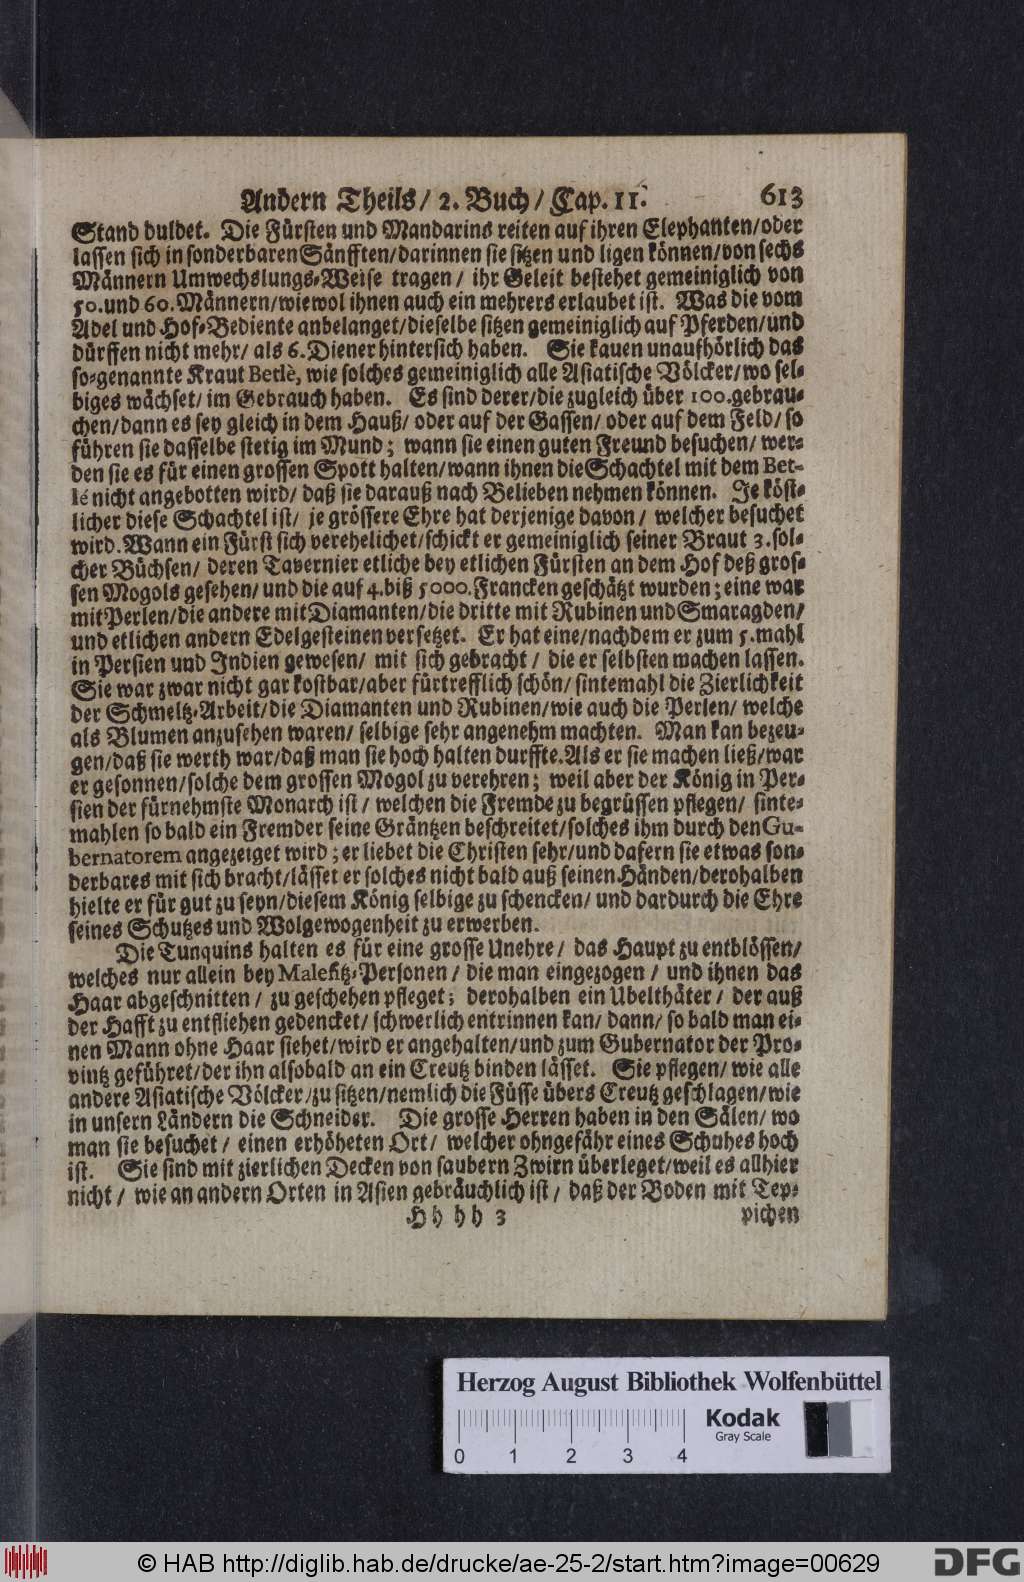 Andern Theils / 2. Buch / Cap. 11. 613
Stand duldet. Die Fürsten und Mandarins reiten auf ihren Elephanten / oder
lassen sich in sonderbaren Sänfften / darinnen sie sitzen und ligen können / von sechs
Männern Umwechslungs-Weise tragen / ihr Geleit bestehet gemeiniglich von
50. und 60. Männern / wiewol ihnen auch ein mehrers erlaubet ist. Was die vom
Adel und Hof-Bediente anbelanget / dieselbe sitzen gemeiniglich auf Pferden / und
dürffen nicht mehr / als 6. Diener hintersich haben. Sie kauen unaufhörlich das
so-genannte Kraut Betlè, wie solches gemeiniglich alle Asiatische Völcker / wo sel-
biges wächset / im Gebrauch haben. Es sind derer / die zugleich über 100. gebrau-
chen / dann es sey gleich in dem Hauß / oder auf der Gassen / oder auf dem Feld / so
führen sie dasselbe stetig im Mund; wann sie einen guten Freund besuchen / wer-
den sie es für einen grossen Spott halten / wann ihnen die Schachtel mit dem Bet-
lé nicht angebotten wird / daß sie darauß nach Belieben nehmen können. Je köst-
licher diese Schachtel ist / je grössere Ehre hat derjenige davon / welcher besuchet
wird. Wann ein Fürst sich verehelichet / schickt er gemeiniglich seiner Braut 3. sol-
cher Büchsen / deren Tavernier etliche bey etlichen Fürsten an dem Hof deß gros-
sen Mogols gesehen / und die auf 4. biß 5000. Francken geschätzt wurden; eine war
mit Perlen / die andere mit Diamanten / die dritte mit Rubinen und Smaragden /
und etlichen andern Edelgesteinen versetzet. Er hat eine / nachdem er zum 5. mahl
in Persien und Indien gewesen / mit sich gebracht / die er selbsten machen lassen.
Sie war zwar nicht gar kostbar / aber fürtrefflich schön / sintemahl die Zierlichkeit
der Schmeltz-Arbeit / die Diamanten und Rubinen / wie auch die Perlen / welche
als Blumen anzusehen waren / selbige sehr angenehm machten. Man kan bezeu-
gen / daß sie werth war / daß man sie hoch halten durffte. Als er sie machen ließ / war
er gesonnen / solche dem grossen Mogol zu verehren; weil aber der König in Per-
sien der fürnehmste Monarch ist / welchen die Fremde zu begrüssen pflegen / sinte-
mahlen so bald ein Fremder seine Gräntzen beschreitet / solches ihm durch den Gu-
bernatorem angezeiget wird; er liebet die Christen sehr / und dafern sie etwas son-
derbares mit sich bracht / lässet er solches nicht bald auß seinen Händen / derohalben
hielte er für gut zu seyn / diesem König selbige zu schencken / und dardurch die Ehre
seines Schutzes und Wolgewogenheit zu erwerben.
Die Tunquins halten es für eine grosse Unehre / das Haupt zu entblössen /
welches nur allein bey Malefitz-Personen / die man eingezogen / und ihnen das
Haar abgeschnitten / zu geschehen pfleget; derohalben ein Ubelthäter / der auß
der Hafft zu entfliehen gedencket / schwerlich entrinnen kan / dann / so bald man ei-
nen Mann ohne Haar siehet / wird er angehalten / und zum Gubernator der Pro-
vintz geführet / der ihn alsobald an ein Creutz binden lässet. Sie pflegen / wie alle
andere Asiatische Völcker / zu sitzen / nemlich die Füsse übers Creutz geschlagen / wie
in unsern Ländern die Schneider. Die grosse Herren haben in den Sälen / wo
man sie besuchet / einen erhöheten Ort / welcher ohngefähr eines Schuhes hoch
ist. Sie sind mit zierlichen Decken von saubern Zwirn überleget / weil es allhier
nicht / wie an andern Orten in Asien gebräuchlich ist / daß der Boden mit Tep-
Hh hh 3 pichen
Herzog August Bibliothek Wolfenbüttel
Kodak
Gray Scale
0 1 2 3 4
© HAB http://diglib.hab.de/drucke/ae-25-2/start.htm?image=00629
DFG